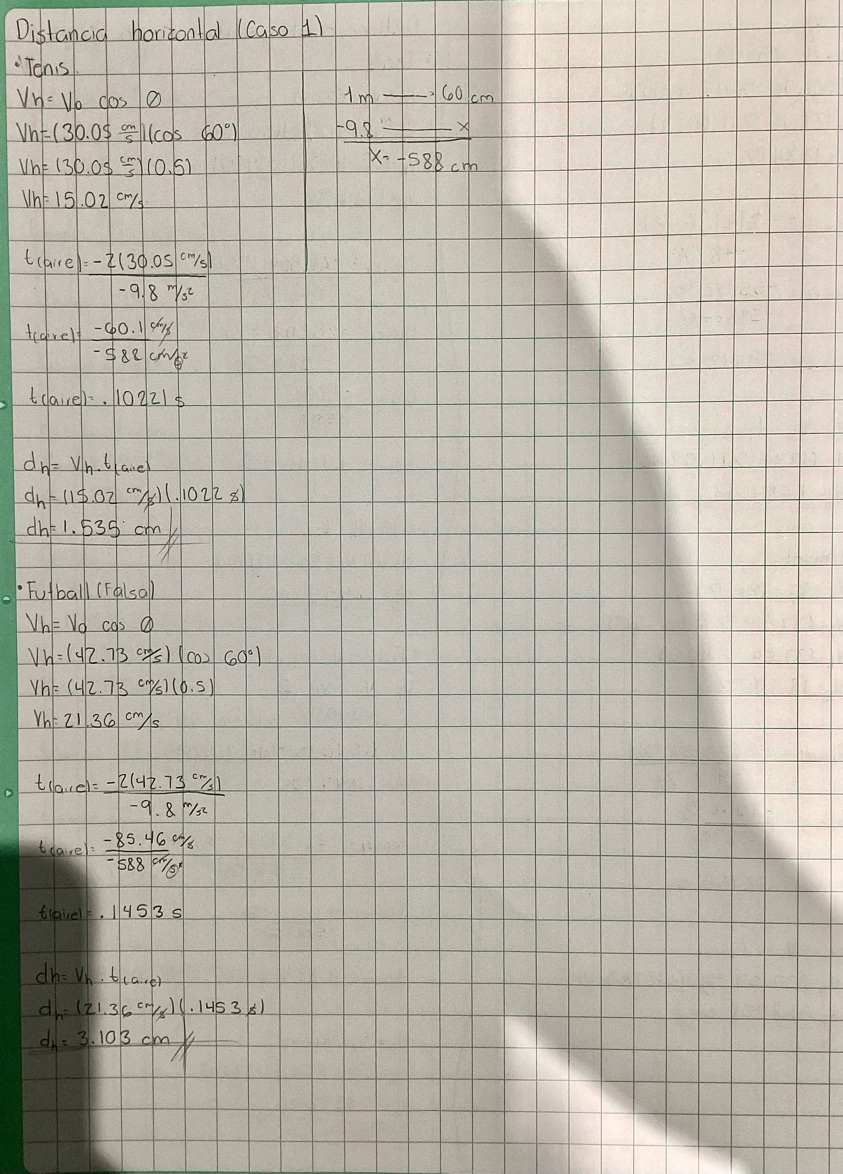 Distancia horizontal (Caso 1)
• Tenis
Vh= Vo cos Ø
Vh=(30.05 cm/s)(cos 60°)
Vh=(30.05 cm/s)(0.5)
Vh=15.02 cm/s
1m —— 60 cm
-9.8 —— x
x= -588 cm
t(aire)= -2(30.05 cm/s)
-9.8 m/s²
t(aire)= -60.1 cm/s
-588 cm/s²
t(aire)= .10221 s
dh= Vh. t(aire)
dh=(15.02 cm/s)(.1022 s)
dh=1.535 cm //
• Futball (Falsa)
Vh= Vo cos Ø
Vh=(42.73 cm/s)(cos 60°)
Vh=(42.73 cm/s)(0.5)
Vh=21.36 cm/s
t(aire)= -2(42.73 cm/s)
-9.8 m/s²
t(aire)= -85.46 cm/s
-588 cm/s²
t(aire)= .1453 s
dh= Vh. t(aire)
dh=(21.36 cm/s)(.1453 s)
dh= 3.103 cm //